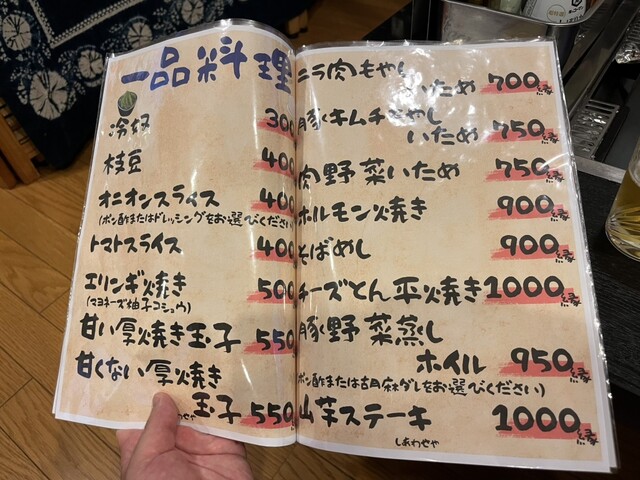 一品料理
冷奴 300
枝豆 400
オニオンスライス 400
(ポン酢またはドレッシングをお選びください
トマトスライス 400
エリンギ焼き 500
(マヨネーズ柚子コショウ)
甘い厚焼き玉子 550
甘くない厚焼き
玉子 550
しあわせや
ニラ肉もやし
いため 700縁
豚キムチもやし
いため 750縁
肉野菜いため 750縁
ホルモン焼き 900縁
そばめし 900縁
チーズとん平焼き 1000縁
豚と野菜蒸し
ホイル 950縁
ポン酢または胡麻ダレをお選びください)
山芋ステーキ 1000縁
しあわせや